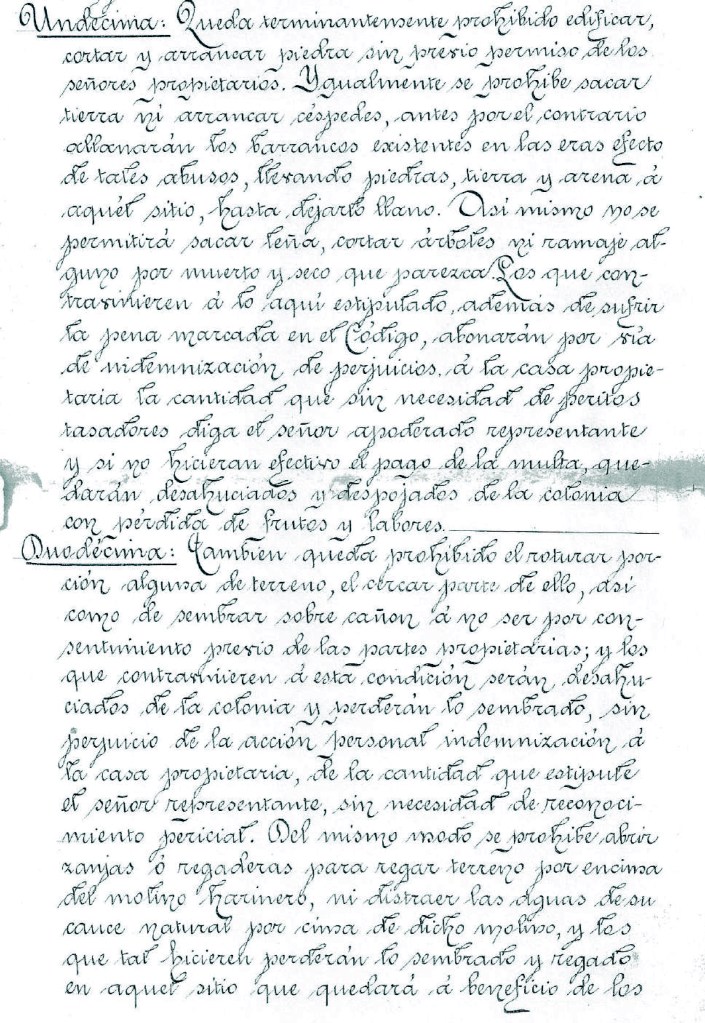 Undécima: Queda terminantemente prohibido edificar,
cortar y arrancar piedra sin previo permiso de los
señores propietarios. Ygualmente se prohibe sacar
tierra ni arrancar céspedes, antes por el contrario
allanarán los barrancos existentes en las eras efecto
de tales abusos, llevando piedras, tierra y arena á
aquel sitio, hasta dejarlo llano. Asi mismo no se
permitirá sacar leña, cortar árboles ni ramaje al-
guno por muerto y seco que parezca. Los que con-
travinieren á lo aquí estipulado, además de sufrir
la pena marcada en el Código, abonarán por vía
de indemnización de perjuicios, á la casa propie-
taria la cantidad que sin necesidad de peritos
tasadores diga el señor apoderado representante
y si no hicieran efectivo el pago de la multa, que-
darán desahuciados y despojados de la colonia
con pérdida de frutos y labores.
Duodécima: Tambien queda prohibido el roturar por-
ción alguna de terreno, el cercar parte de ello, asi
como de sembrar sobre cañon á no ser por con-
sentimiento previo de las partes propietarias; y los
que contravinieren á esta condición serán desahu-
ciados de la colonia y perderán lo sembrado, sin
perjuicio de la acción personal indemnización á
la casa propietaria, de la cantidad que estipule
el señor representante, sin necesidad de reconoci-
miento pericial. Del mismo modo se prohibe abrir
zanjas ó regaderas para regar terreno por encima
del molino harinero, ni distraer las aguas de su
cauce natural por cima de dicho molino, y los
que tal hicieren perderán lo sembrado y regado
en aquel sitio que quedará á beneficio de los